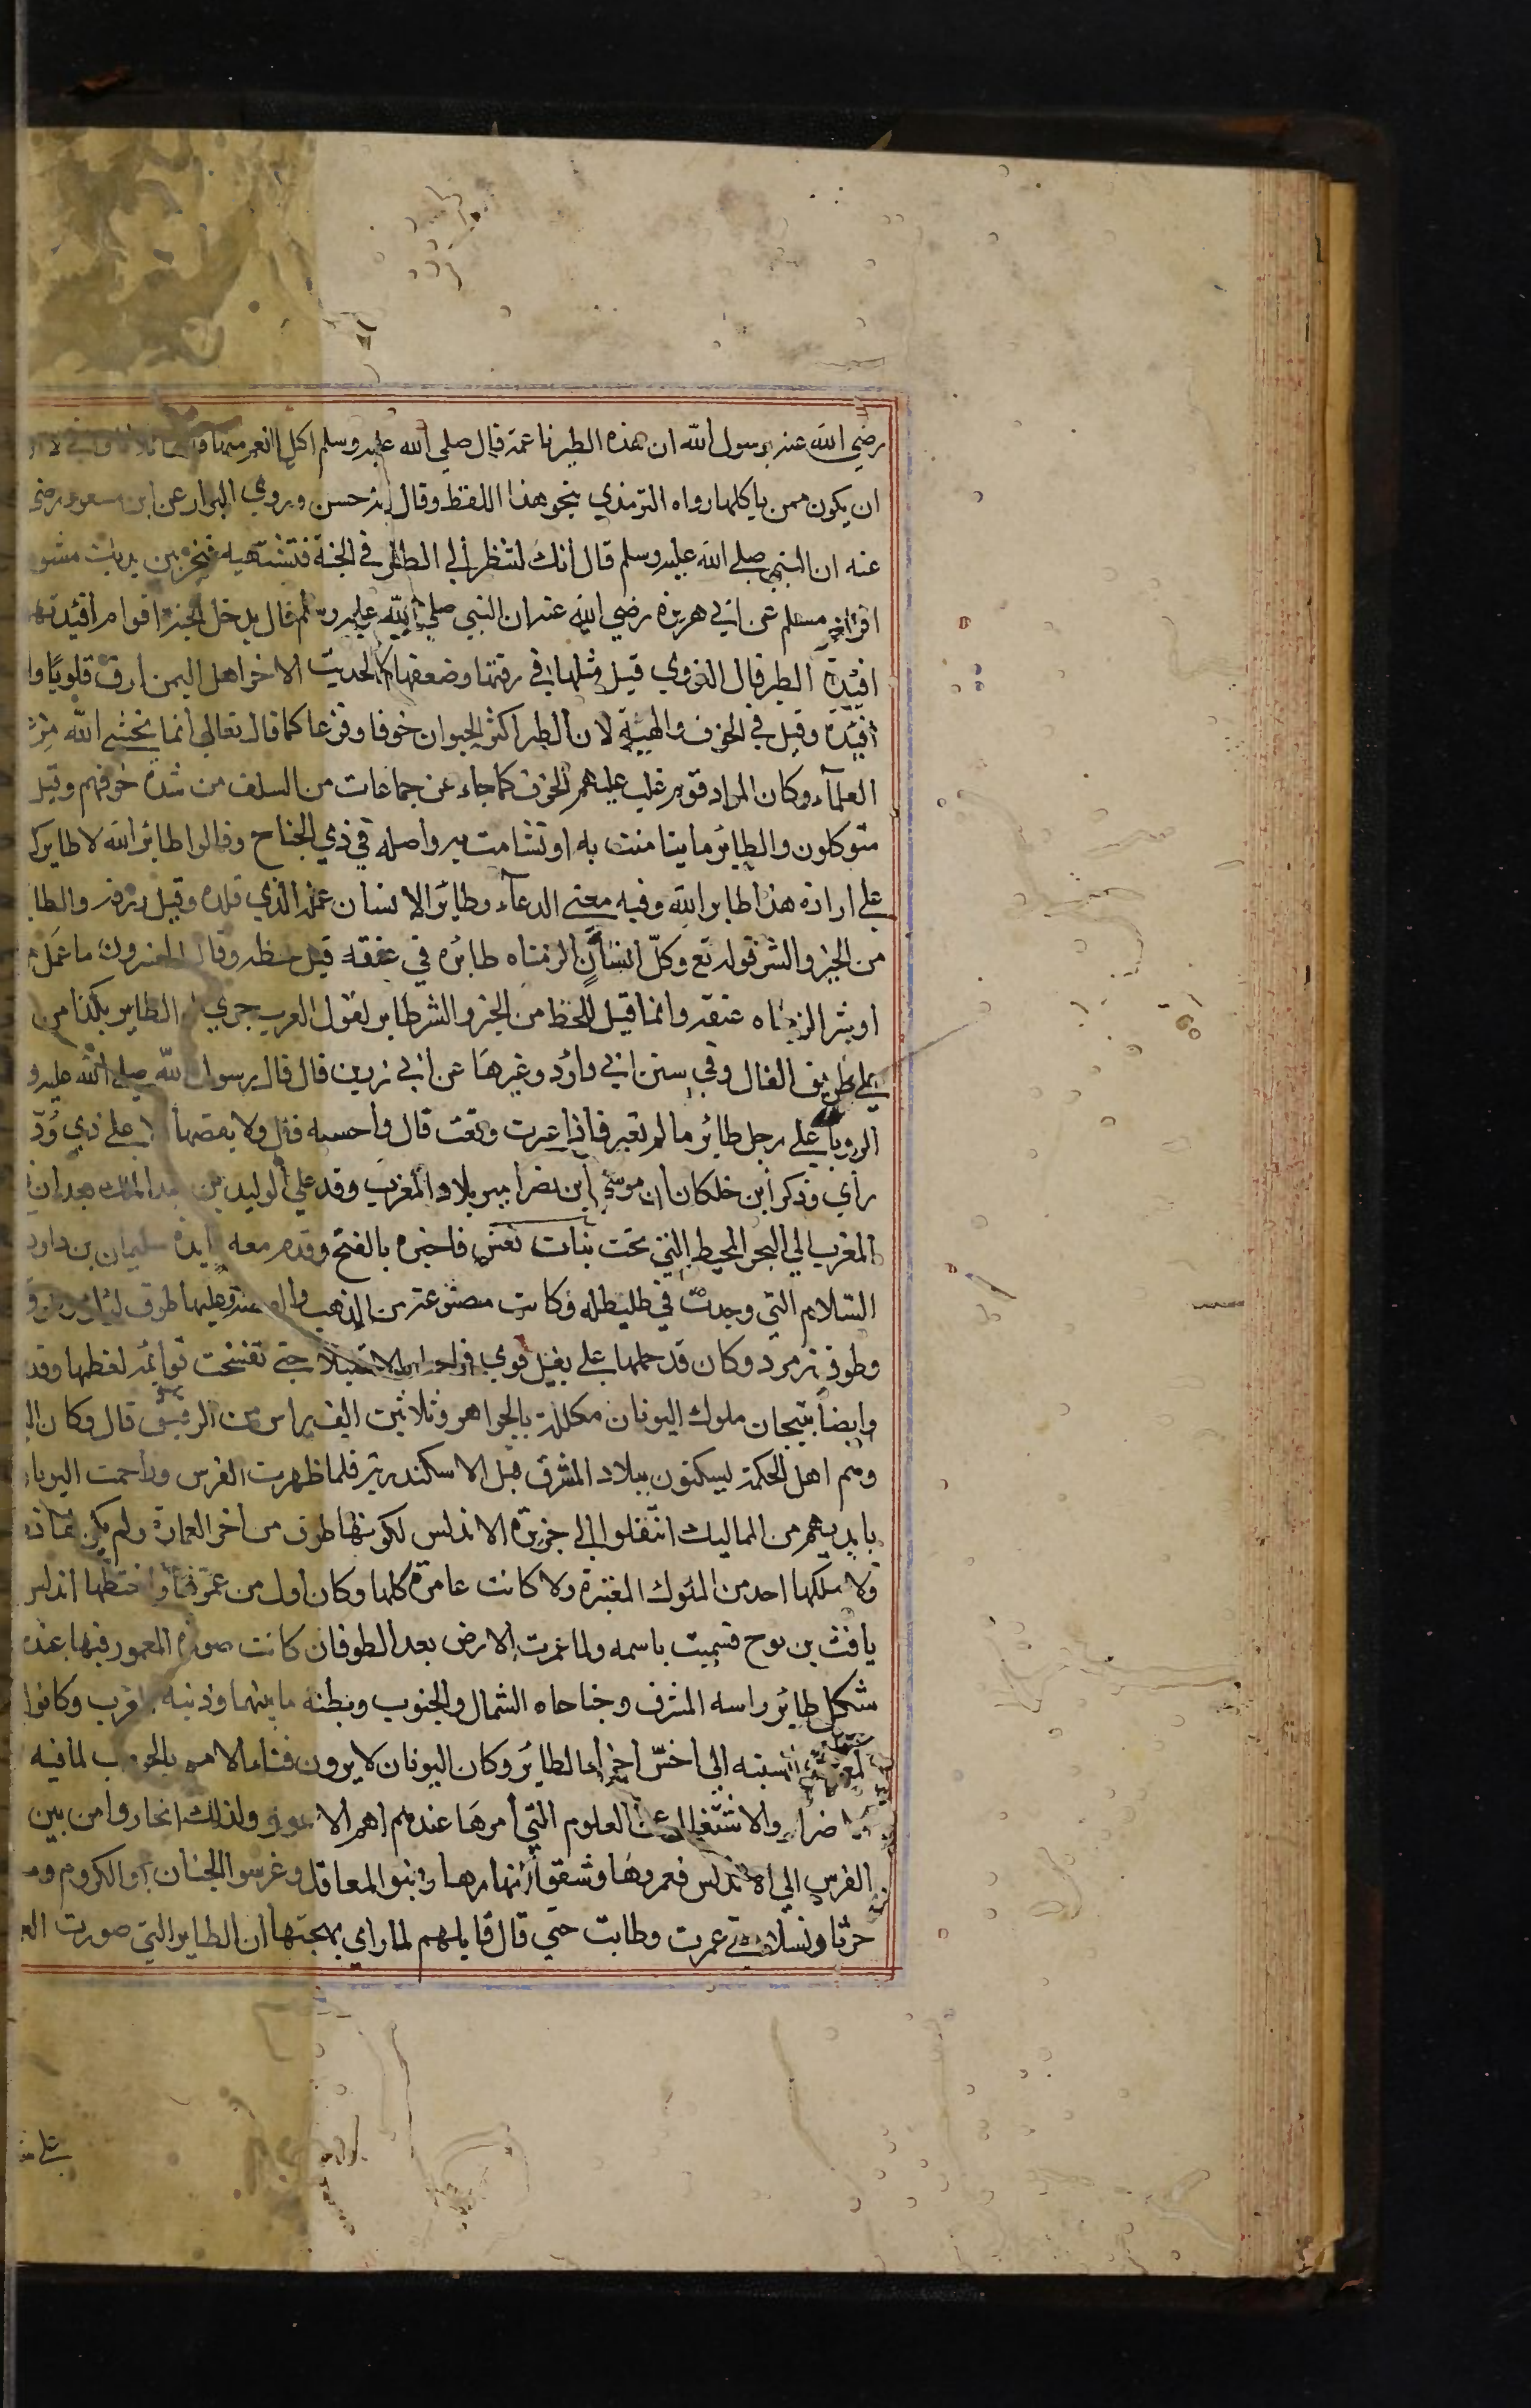 رضي الله عنه يرسول الله ان هذه الطير ناعمة قال صلي الله عليه وسلم اكل انعم منها
ان يكون ممن ياكلها رواه الترمذي بنحو هذا اللفظ وقال انه حسن وروي البزار عن ابن مسعود رضي
عنه ان النبي صلى الله عليه وسلم قال انك لتنظر الي الطائر في الجنة فتشتهيه فيخر بين يديك مشو
افراخ مسلم عن ابي هريرة رضي الله عنه ان النبي صلي الله عليه وسلم قال يدخل الجنة اقوام افئدتهم
افئدة الطير قال النووي قيل مثلها في رقتها وضعفها كالحديث الاخر اهل اليمن ارق قلوبًا وا
افئدة وقيل في الخوف والهيئة لان الطير اكثر الحيوان خوفا وفزعا كما قال تعالى انما يخشى الله من
العلماء وكان المراد قوم غلب عليهم الخوف كما جاء عن جماعات من السلف من شدة خوفهم وقيل
متوكلون والطائر ما يتامنت به او تشامت به واصله في ذي الجناح وقالوا طائر الله لا طايرك
على ارادة هذا طاير الله وفيه معني الدعاء وطائر الانسان عمله الذي قلده وقيل رزقه والطا
من الخير والشر قوله تع وكلّ انسانٍ الزمناه طائره في عنقه قيل حظه وقال المفسرون ما عمل
او بشر الزمناه عنقه وانما قيل للحظ من الخير والشر طاير لقول العرب جري الطاير بكذا من
على طريق الفال وفي سنن ابي داؤد وغيرها عن ابي رزين قال قال رسول الله صلى الله عليه و
الرويا على رجل طائر ما لم تعبر فاذا عبرت وقعت قال واحسبه قال ولا يقصها الا على ذي وُدّ
راي وذكر ابن خلكان ان موسى ابن نصر امير بلاد المغرب وقد على الوليد بن عبد الملك بعد ان
المغرب الى البحر المحيط الذي تحت بنات نعش فاخبره بالفتح وقدم معه مايدة سليمان بن داود
السّلام التي وجدت في طليطله وكانت مصنوعة من الذهب والفضة وعليها طوق لؤلؤ
وطوق زمرد وكان قد حملها على بغل قوي حتى تفسخت قوائمه لعظمها وقد
وايضا بتيجان ملوك اليونان مكللة بالجواهر وثلاثين الف راس من الرقيق قال وكان ال
وهم اهل الحكمة يسكنون ببلاد المشرق قبل الاسكندرية فلما ظهرت الفرس وزاحمت اليونا
بايديهم من المماليك انتقلوا الى جزيرة الاندلس لكونها طرف من اخر العمارة ولم يكن لها ذ
ولا ملكها احد من الملوك المعتبرة ولا كانت عامرة كلها وكان اول من عمر فيها واختطها اندلس
يافث بن نوح فسميت باسمه ولما عمرت الارض بعد الطوفان كانت صورة المعمور فيها عند
شكل طائر راسه المشرق وجناحاه الشمال والجنوب وبطنه ما بينهما وذنبه المغرب وكانوا
المغرب نسبته الى اخسّ اجزاء الطائر وكان اليونان لا يرون فناء الامم بالحروب لما فيه
اضرار والاشتغال عن العلوم التي امرها عندهم اهم الامور ولذلك انحازوا من بين
الفرس الى الاندلس فعمروها وشققوا انهارها وابنوا المعاقل وغرسوا الجنان والكروم وم
حرثا ونسلا حتى عمرت وطابت حتي قال قايلهم لما راي بهجتها ان الطاير التي صورت ال
على